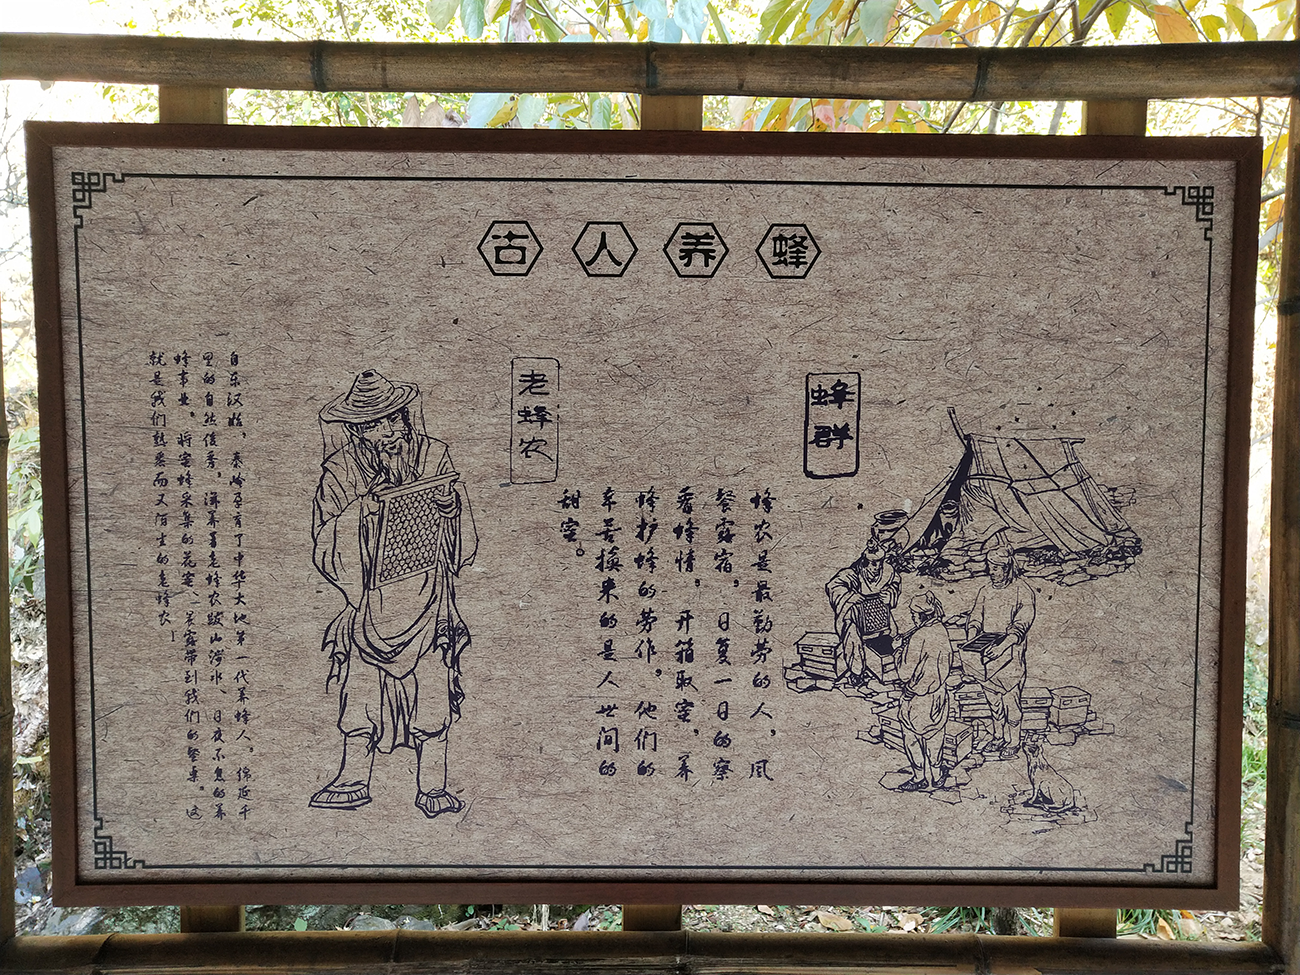 古人养蜂
老蜂农
自东汉始，秦岭孕育了中华大地第一代养蜂人。绵延千
里的自然俊秀，滋养着老蜂农跋山涉水、日夜不息的养
蜂事业。将蜜蜂采集的花蜜、晨露带到我们的餐桌。这
就是我们熟悉而又陌生的老蜂农！
蜂群
蜂农是最勤劳的人，风
餐露宿，日复一日的察
看蜂情，开箱取蜜，养
蜂护蜂的劳作，他们的
辛苦换来的是人世间的
甜蜜。